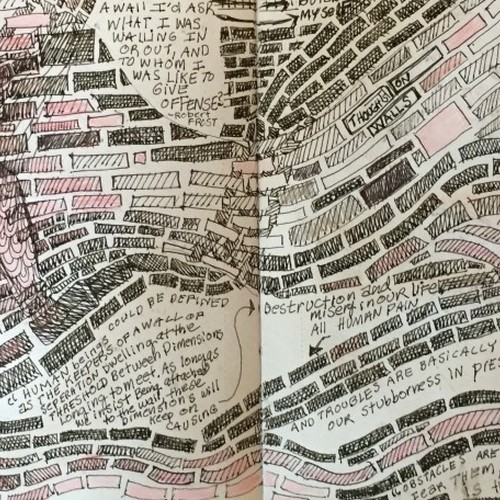 A WALL I'D ASK
WHAT I WAS
WALLING IN
OR OUT, AND
TO WHOM I
WAS LIKE TO
GIVE
OFFENSE?
~Robert
FROST
BUILD
MYSE
THOUGHTS ON
WALLS
COULD BE DEFINED
HUMAN beings
as THE KEEPERS OF A WALL OF
SEPERATION Dwelling at the
THRESHOLD Between Dimensions
long to meet. As long as
we insist Being attached
to the wall, these
Dimensions will
KEEP ON
CAUSING
Destruction and
misery in our life
All HUMAN PAIN
AND TROUBLES ARE BASICALLY
OUR stubborness IN PRE
OBSTACLES ARE
OR THEM